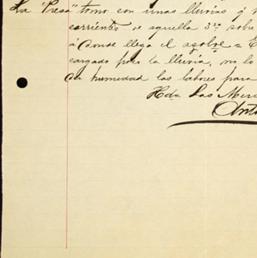 La "Presa" tomo con unas lluvias q
corriente de aquella 3ra sobre
á donde llega el azolve a
cargado para la lluvia, no lo
da humedad las labores para
Hda Las